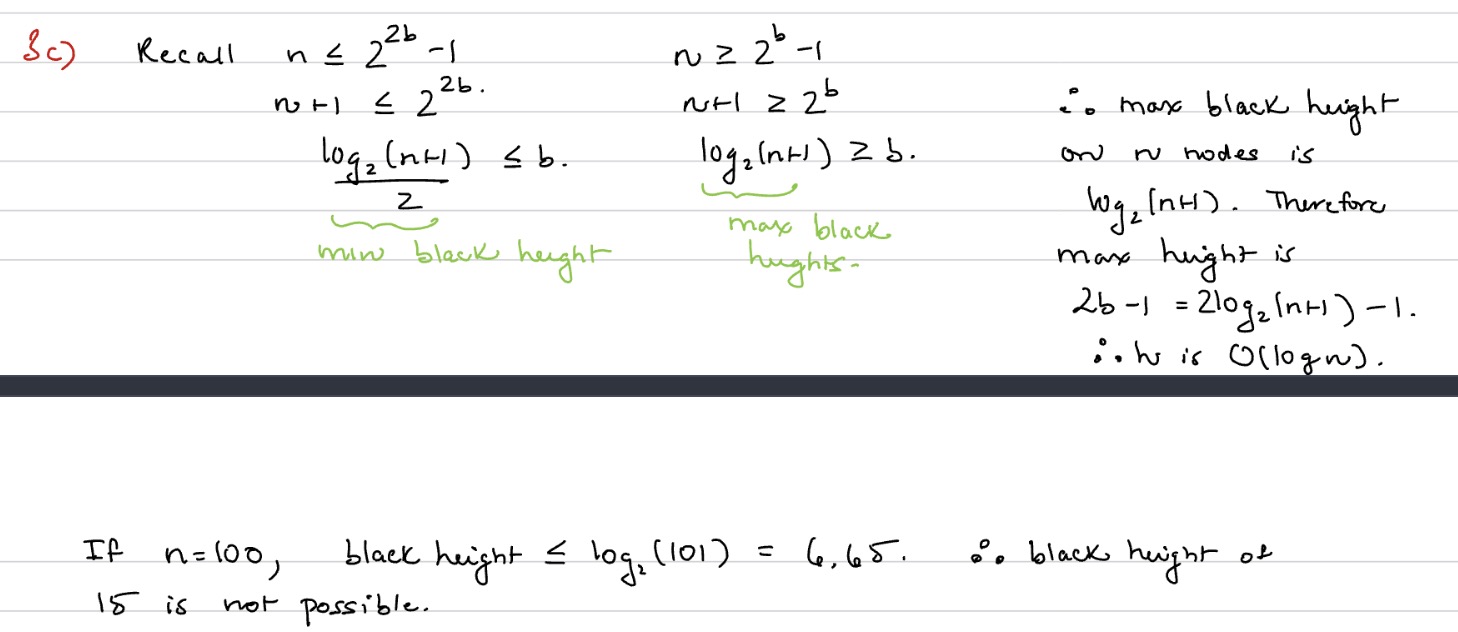 3c) Recall n ≤ 2^{2b} -1
n+1 ≤ 2^{2b}.
log₂(n+1)/2 ≤ b.
min black height
n ≥ 2^b -1
n+1 ≥ 2^b
log₂(n+1) ≥ b.
max black
heights.
∴ max black height
on n nodes is
log₂(n+1). Therefore
max height is
2b -1 = 2log₂(n+1) -1.
∴ h is O(log n).
If n=100, black height ≤ log₂(101) = 6.65. ∴ black height of
15 is not possible.